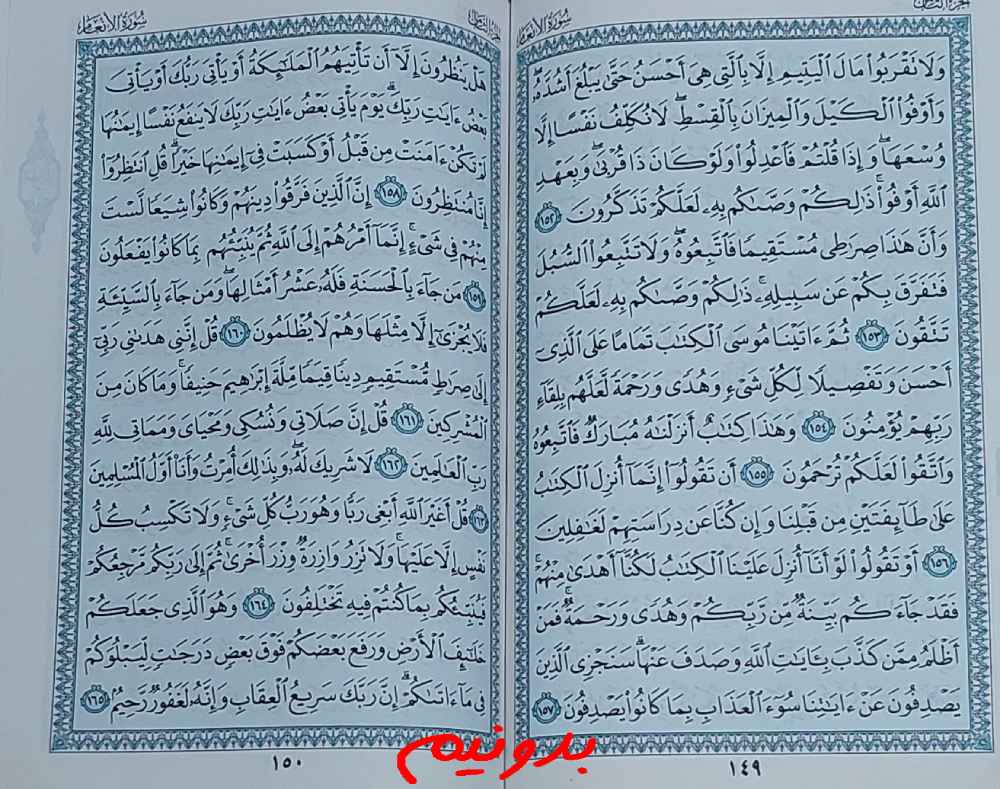 سُورَةُ الأَنعَام
وَلَا تَقْرَبُوا۟ مَالَ ٱلْيَتِيمِ إِلَّا بِٱلَّتِى هِىَ أَحْسَنُ حَتَّىٰ يَبْلُغَ أَشُدَّهُۥ
وَأَوْفُوا۟ ٱلْكَيْلَ وَٱلْمِيزَانَ بِٱلْقِسْطِ ۖ لَا نُكَلِّفُ نَفْسًا إِلَّا
وُسْعَهَا ۖ وَإِذَا قُلْتُمْ فَٱعْدِلُوا۟ وَلَوْ كَانَ ذَا قُرْبَىٰ ۖ وَبِعَهْدِ
ٱللَّهِ أَوْفُوا۟ ۚ ذَٰلِكُمْ وَصَّىٰكُم بِهِۦ لَعَلَّكُمْ تَذَكَّرُونَ ١٥٢
وَأَنَّ هَٰذَا صِرَٰطِى مُسْتَقِيمًا فَٱتَّبِعُوهُ ۖ وَلَا تَتَّبِعُوا۟ ٱلسُّبُلَ
فَتَفَرَّقَ بِكُمْ عَن سَبِيلِهِۦ ۚ ذَٰلِكُمْ وَصَّىٰكُم بِهِۦ لَعَلَّكُمْ
تَتَّقُونَ ١٥٣ ثُمَّ ءَاتَيْنَا مُوسَى ٱلْكِتَٰبَ تَمَامًا عَلَى ٱلَّذِىٓ
أَحْسَنَ وَتَفْصِيلًا لِّكُلِّ شَىْءٍ وَهُدًى وَرَحْمَةً لَّعَلَّهُم بِلِقَآءِ
رَبِّهِمْ يُؤْمِنُونَ ١٥٤ وَهَٰذَا كِتَٰبٌ أَنزَلْنَٰهُ مُبَارَكٌ فَٱتَّبِعُوهُ
وَٱتَّقُوا۟ لَعَلَّكُمْ تُرْحَمُونَ ١٥٥ أَن تَقُولُوٓا۟ إِنَّمَآ أُنزِلَ ٱلْكِتَٰبُ
عَلَىٰ طَآئِفَتَيْنِ مِن قَبْلِنَا وَإِن كُنَّا عَن دِرَاسَتِهِمْ لَغَٰفِلِينَ
١٥٦ أَوْ تَقُولُوا۟ لَوْ أَنَّآ أُنزِلَ عَلَيْنَا ٱلْكِتَٰبُ لَكُنَّآ أَهْدَىٰ مِنْهُمْ ۚ
فَقَدْ جَآءَكُم بَيِّنَةٌ مِّن رَّبِّكُمْ وَهُدًى وَرَحْمَةٌ ۚ فَمَنْ
أَظْلَمُ مِمَّن كَذَّبَ بِـَٔايَٰتِ ٱللَّهِ وَصَدَفَ عَنْهَا ۗ سَنَجْزِى ٱلَّذِينَ
يَصْدِفُونَ عَنْ ءَايَٰتِنَا سُوٓءَ ٱلْعَذَابِ بِمَا كَانُوا۟ يَصْدِفُونَ ١٥٧
١٤٩
سُورَةُ الأَنعَام
هَلْ يَنظُرُونَ إِلَّآ أَن تَأْتِيَهُمُ ٱلْمَلَٰٓئِكَةُ أَوْ يَأْتِىَ رَبُّكَ أَوْ يَأْتِىَ
بَعْضُ ءَايَٰتِ رَبِّكَ ۗ يَوْمَ يَأْتِى بَعْضُ ءَايَٰتِ رَبِّكَ لَا يَنفَعُ نَفْسًا إِيمَٰنُهَا
لَمْ تَكُنْ ءَامَنَتْ مِن قَبْلُ أَوْ كَسَبَتْ فِىٓ إِيمَٰنِهَا خَيْرًا ۗ قُلِ ٱنتَظِرُوٓا۟
إِنَّا مُنتَظِرُونَ ١٥٨ إِنَّ ٱلَّذِينَ فَرَّقُوا۟ دِينَهُمْ وَكَانُوا۟ شِيَعًا لَّسْتَ
مِنْهُمْ فِى شَىْءٍ ۚ إِنَّمَآ أَمْرُهُمْ إِلَى ٱللَّهِ ثُمَّ يُنَبِّئُهُم بِمَا كَانُوا۟ يَفْعَلُونَ
١٥٩ مَن جَآءَ بِٱلْحَسَنَةِ فَلَهُۥ عَشْرُ أَمْثَالِهَا ۖ وَمَن جَآءَ بِٱلسَّيِّئَةِ
فَلَا يُجْزَىٰٓ إِلَّا مِثْلَهَا وَهُمْ لَا يُظْلَمُونَ ١٦٠ قُلْ إِنَّنِى هَدَىٰنِى رَبِّىٓ
إِلَىٰ صِرَٰطٍ مُّسْتَقِيمٍ دِينًا قِيَمًا مِّلَّةَ إِبْرَٰهِيمَ حَنِيفًا ۚ وَمَا كَانَ مِنَ
ٱلْمُشْرِكِينَ ١٦١ قُلْ إِنَّ صَلَاتِى وَنُسُكِى وَمَحْيَاىَ وَمَمَاتِى لِلَّهِ
رَبِّ ٱلْعَٰلَمِينَ ١٦٢ لَا شَرِيكَ لَهُۥ ۖ وَبِذَٰلِكَ أُمِرْتُ وَأَنَا۠ أَوَّلُ ٱلْمُسْلِمِينَ
١٦٣ قُلْ أَغَيْرَ ٱللَّهِ أَبْغِى رَبًّا وَهُوَ رَبُّ كُلِّ شَىْءٍ ۚ وَلَا تَكْسِبُ كُلُّ
نَفْسٍ إِلَّا عَلَيْهَا ۚ وَلَا تَزِرُ وَازِرَةٌ وِزْرَ أُخْرَىٰ ۚ ثُمَّ إِلَىٰ رَبِّكُم مَّرْجِعُكُمْ
فَيُنَبِّئُكُم بِمَا كُنتُمْ فِيهِ تَخْتَلِفُونَ ١٦٤ وَهُوَ ٱلَّذِى جَعَلَكُمْ
خَلَٰٓئِفَ ٱلْأَرْضِ وَرَفَعَ بَعْضَكُمْ فَوْقَ بَعْضٍ دَرَجَٰتٍ لِّيَبْلُوَكُمْ
فِى مَآ ءَاتَىٰكُمْ ۗ إِنَّ رَبَّكَ سَرِيعُ ٱلْعِقَابِ وَإِنَّهُۥ لَغَفُورٌ رَّحِيمٌ ١٦٥
١٥٠
بدونیم